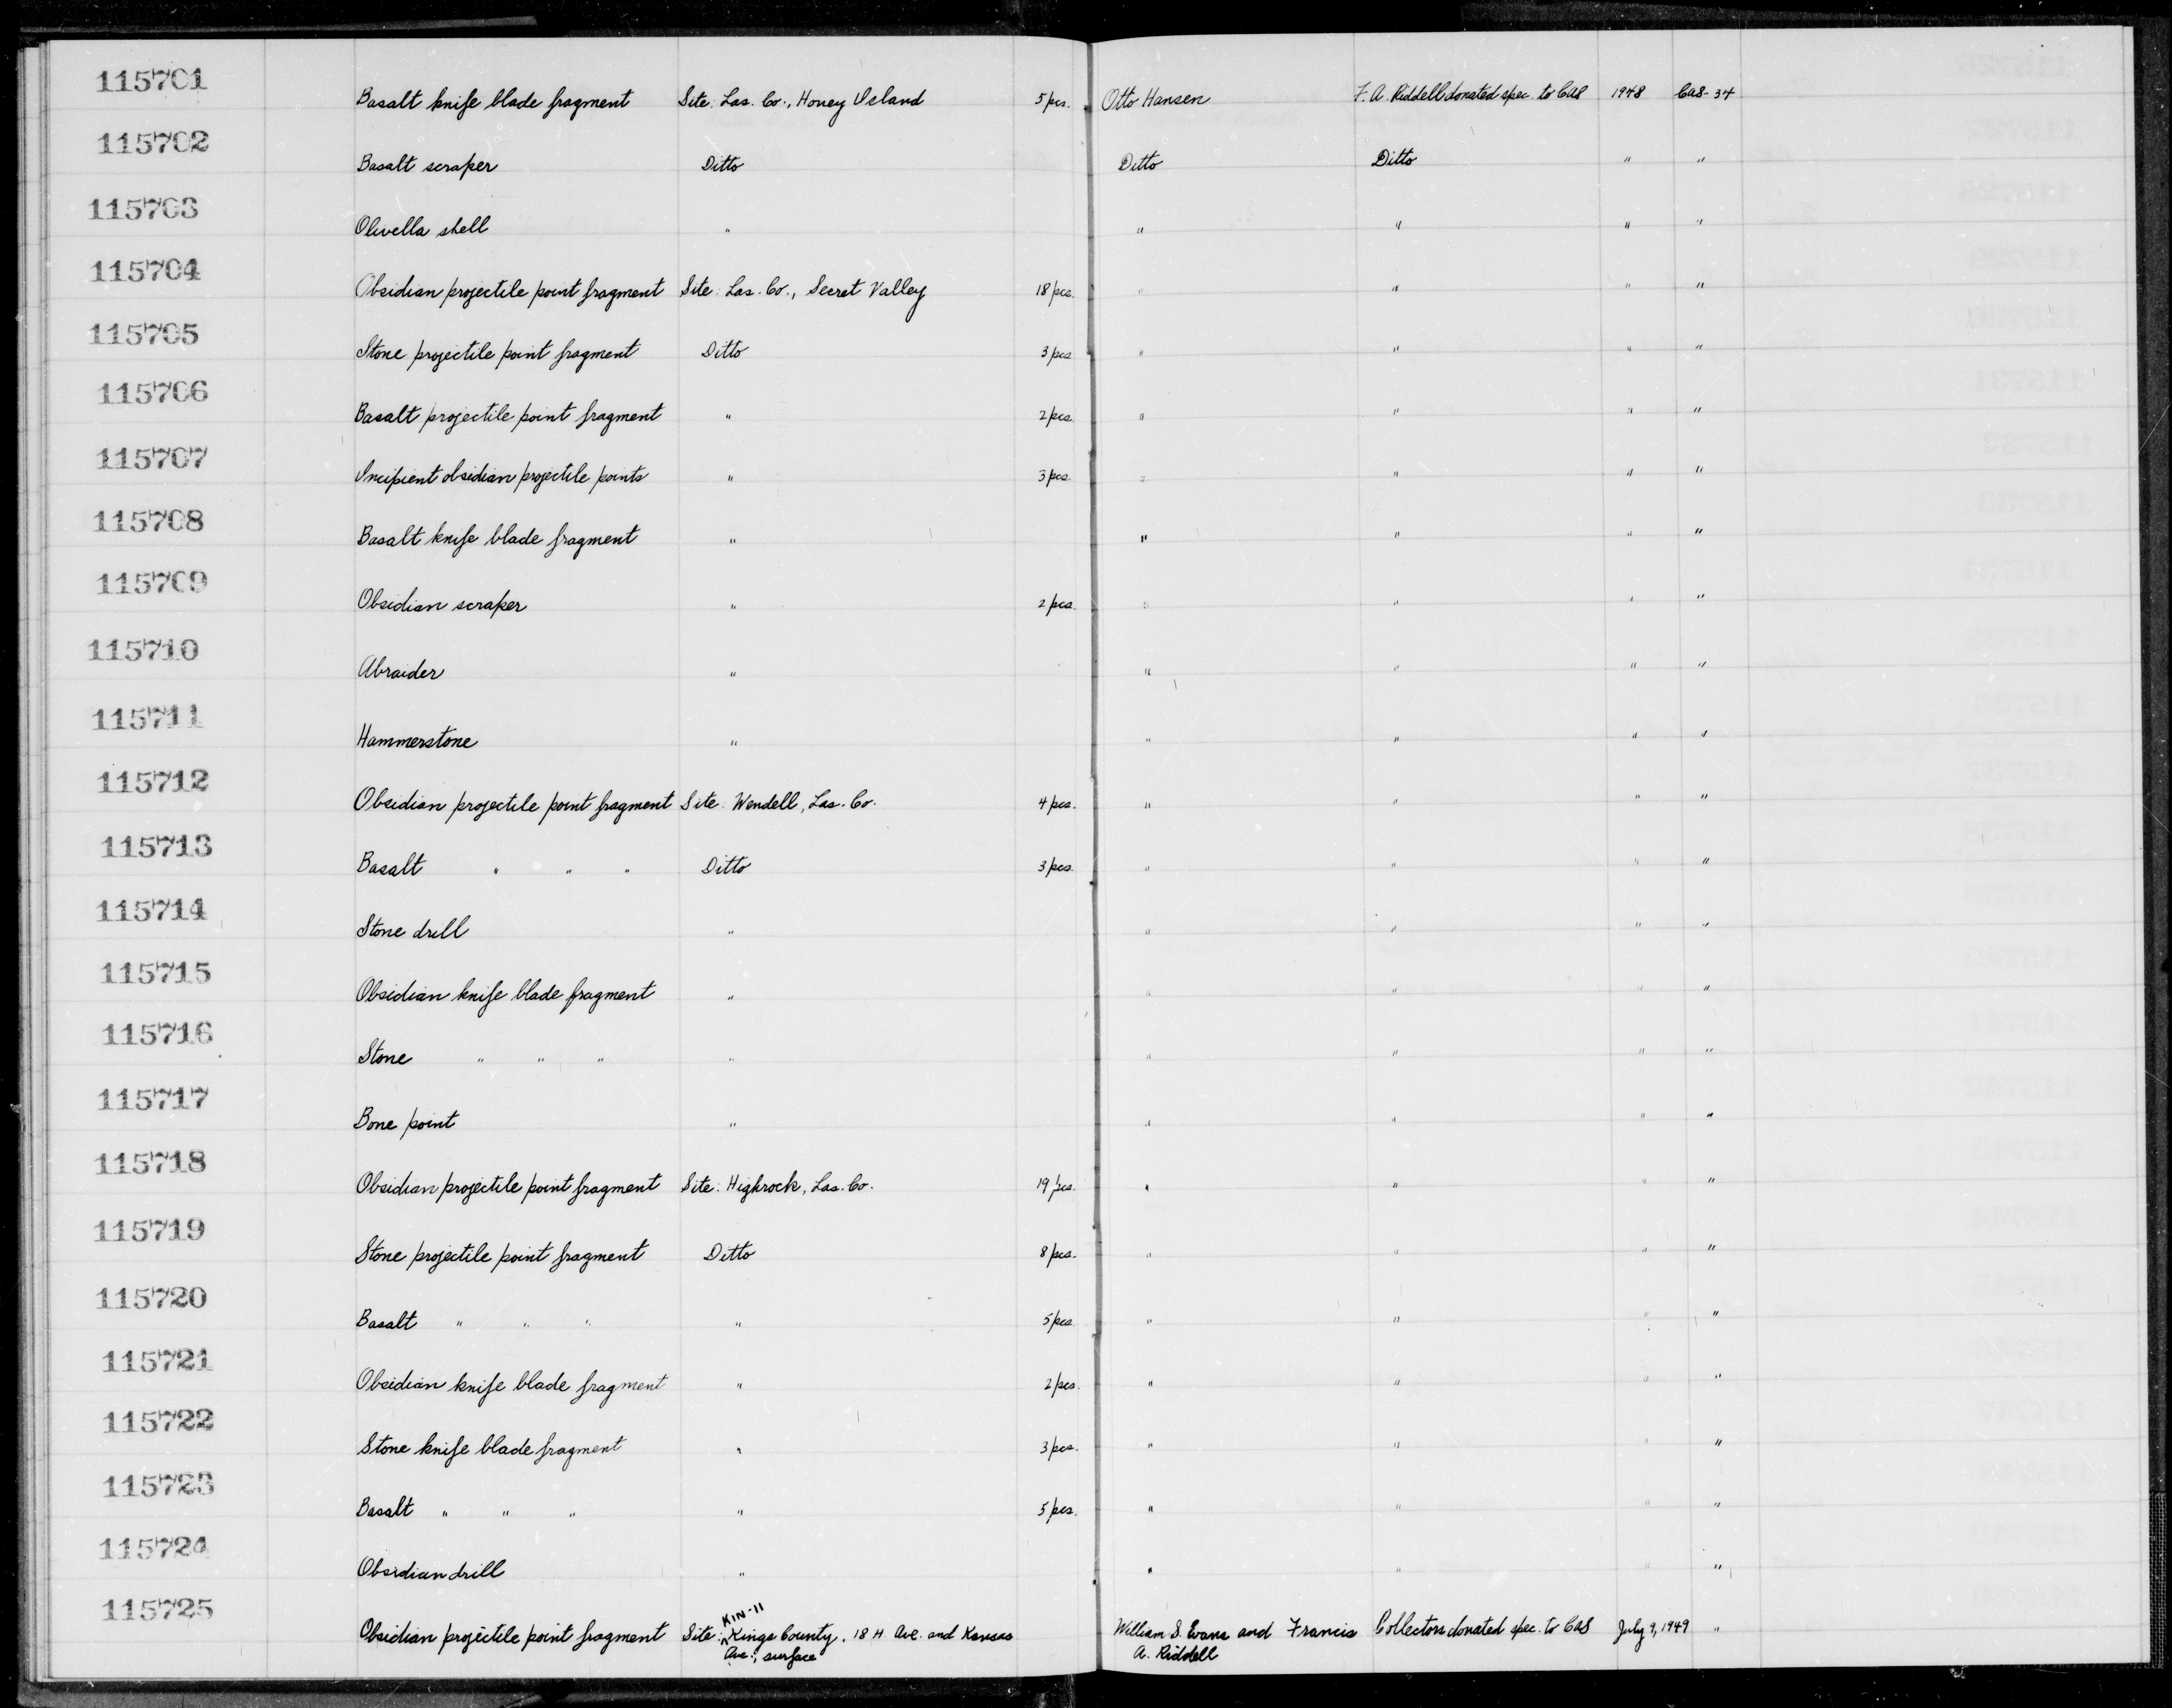 115701 Basalt knife blade fragment Site: Las. Co., Honey Island 5 pcs. Otto Hansen F. A. Riddell donated spec. to CAS 1948 CAS-34
115702 Basalt scraper Ditto Ditto Ditto " "
115703 Olivella shell " " " " "
115704 Obsidian projectile point fragment Site: Las. Co., Secret Valley 18 pcs. " " " "
115705 Stone projectile point fragment Ditto 3 pcs. " " " "
115706 Basalt projectile point fragment " 2 pcs. " " " "
115707 Incipient obsidian projectile points " 3 pcs. " " " "
115708 Basalt knife blade fragment " " " " "
115709 Obsidian scraper " 2 pcs. " " " "
115710 Abraider " " " " "
115711 Hammerstone " " " " "
115712 Obsidian projectile point fragment Site: Wendell, Las. Co. 4 pcs. " " " "
115713 Basalt " " " Ditto 3 pcs. " " " "
115714 Stone drill " " " " "
115715 Obsidian knife blade fragment " " " " "
115716 Stone " " " " " " " "
115717 Bone point " " " " "
115718 Obsidian projectile point fragment Site: Highrock, Las. Co. 19 pcs. " " " "
115719 Stone projectile point fragment Ditto 8 pcs. " " " "
115720 Basalt " " " " 5 pcs. " " " "
115721 Obsidian knife blade fragment " 2 pcs. " " " "
115722 Stone knife blade fragment " 3 pcs. " " " "
115723 Basalt " " " " 5 pcs. " " " "
115724 Obsidian drill " " " " "
115725 KIN-11
Obsidian projectile point fragment Site: Kings County, 18 H Ave. and Kansas William S. Evans and Francis Collectors donated spec. to CAS July 9, 1949 "
Ave., surface A. Riddell